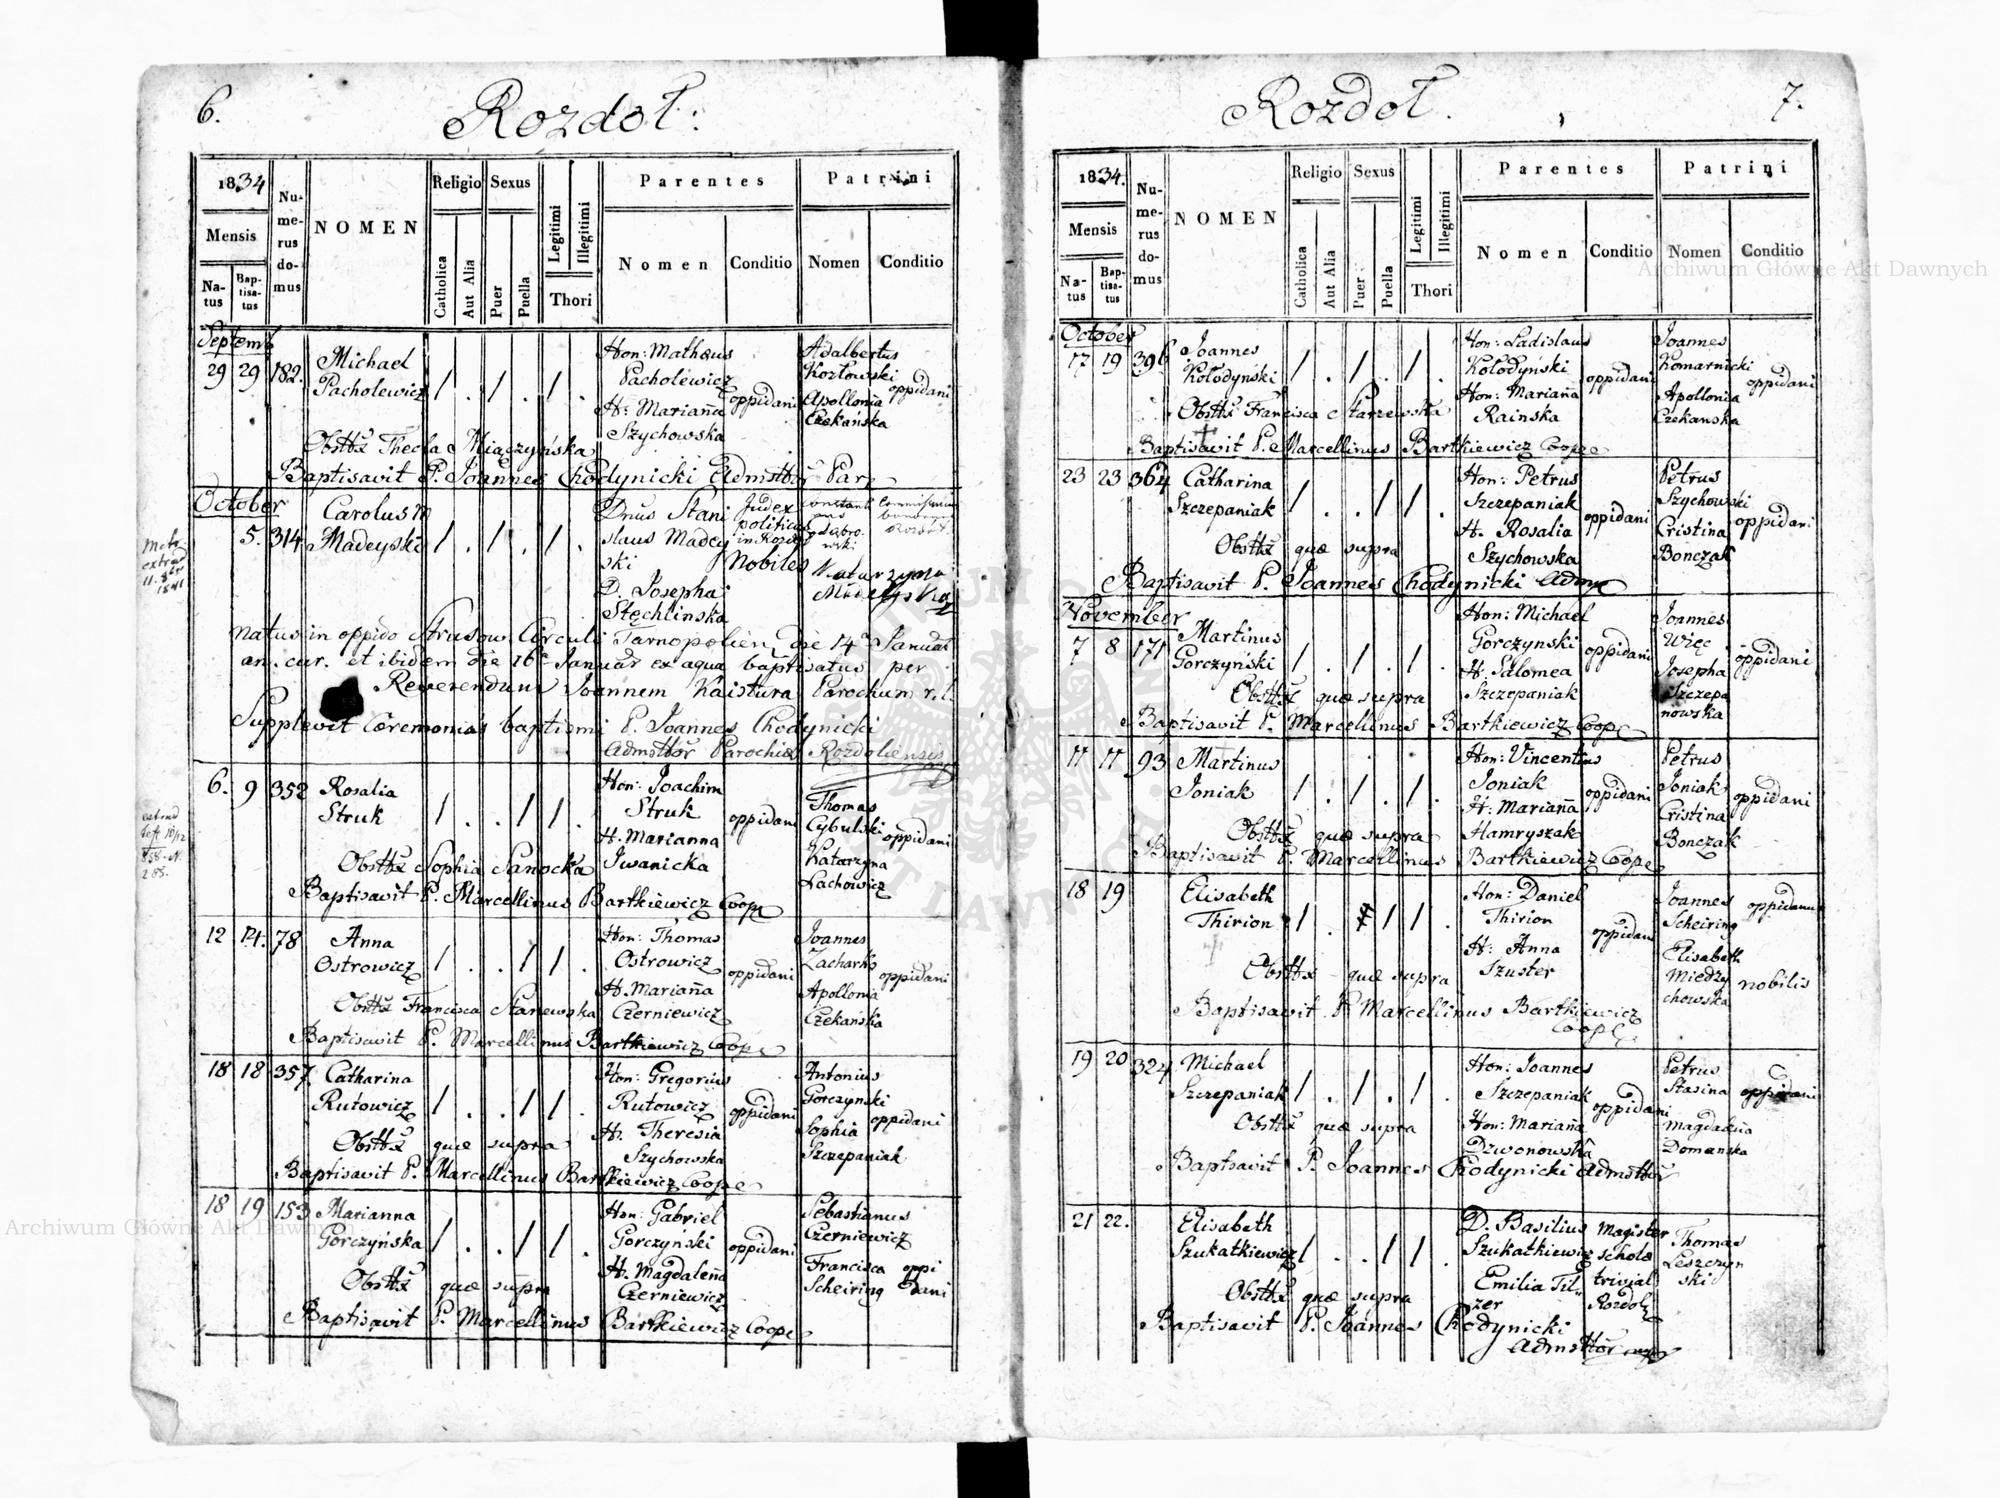 6.
Rozdoł:
1834
Nu-
me-
rus
do-
mus
NOMEN
Religio
Sexus
Legitimi
Illegitimi
Parentes
Patrini
Mensis
Na-
tus
Bap-
tisa-
tus
Catholica
Aut Alia
Puer
Puella
Thori
Nomen
Conditio
Nomen
Conditio
Septemb
29 29 182. Michael
Pacholewicz
Hon: Mathæus
Pacholewicz
H: Mariaña
Szychowska
oppidani
Adalbertus
Kozłowski
Apollonia
Czekańska
oppidani
Obsttx Thecla Miączyńska
Baptisavit P. Joannes Chodynicki Admsttor Par
October
5. 314 Carolus
Madeyski
Dnus Stani
slaus Madey
ski
D. Josepha
Stęchlinska
Judex
politicus
in Rozdoł
Nobiles
Katarzyna
Madeyska
natus in oppido Strusow Circuli Tarnopolien, die 14a Januar
an. cur. et ibidem die 16a Januar ex aqua baptisatus per
Reverendum Joannem Kaistura Parochum r. l.
Supplevit Ceremonias baptismi P. Joannes Chodynicki
Admsttor Parochiæ Rozdoliensis
6. 9 352 Rosalia
Struk
Hon: Joachim
Struk
H. Marianna
Iwanicka
oppidani
Thomas
Cybulski
Katarzyna
Lachowicz
oppidani
Obsttx Sophia Sanocka
Baptisavit P. Marcellinus Bartkiewicz Coop
12 14. 78 Anna
Ostrowicz
Hon: Thomas
Ostrowicz
H. Mariaña
Czerniewicz
oppidani
Joannes
Zacharko
Apollonia
Czekańska
oppidani
Obsttx Francisca Starzewska
Baptisavit P. Marcellinus Bartkiewicz Coop
18 18 357 Catharina
Rutowicz
Hon: Gregorius
Rutowicz
H. Theresia
Szychowska
oppidani
Antonius
Gorczynski
Sophia
Szczepaniak
oppidani
Obsttx quæ supra
Baptisavit P. Marcellinus Bartkiewicz Coope
18 19 153 Marianna
Gorczyńska
Hon: Gabriel
Gorczyński
H. Magdaleña
Czerniewicz
oppidani
Sebastianus
Czerniewicz
Francisca
Scheiring
oppi
dani
Obsttx quæ supra
Baptisavit P. Marcellinus Bartkiewicz Coope
7.
Rozdoł.
1834.
Nu-
me-
rus
do-
mus
NOMEN
Religio
Sexus
Legitimi
Illegitimi
Parentes
Patrini
Mensis
Na-
tus
Bap-
tisa-
tus
Catholica
Aut Alia
Puer
Puella
Thori
Nomen
Conditio
Nomen
Conditio
October
17 19 396 Joannes
Kołodyński
Hon: Ladislaus
Kołodyński
Hon: Mariaña
Rainska
oppidani
Joannes
Komarnicki
Apollonia
Czekanska
oppidani
Obsttx Francisca Starzewska
Baptisavit P. Marcellinus Bartkiewicz Coope
23 23 364 Catharina
Szczepaniak
Hon: Petrus
Szczepaniak
H. Rosalia
Szychowska
oppidani
Petrus
Szychowski
Cristina
Bonczak
oppidani
Obsttx quæ supra
Baptisavit P. Joannes Chodynicki Adm
November
7 8 171 Martinus
Gorczyński
Hon: Michael
Gorczynski
H. Salomea
Szczepaniak
oppidani
Joannes
Więc
Josepha
Szczepa
nowska
oppidani
Obsttx quæ supra
Baptisavit P. Marcellinus Bartkiewicz Coope
17 17 93 Martinus
Joniak
Hon: Vincentius
Joniak
H: Mariaña
Hamryszak
oppidani
Petrus
Joniak
Cristina
Bonczak
oppidani
Obsttx quæ supra
Baptisavit P. Marcellinus Bartkiewicz Coope
18 19 Elisabeth
Thirion
Hon: Daniel
Thirion
H: Anna
Szuster
oppidani
Joannes
Scheiring
Elisabeth
Miedzy
chowska
oppidanus
nobilis
Obsttx quæ supra
Baptisavit P Marcellinus Bartkiewicz
Coope
19 20 324 Michael
Szczepaniak
Hon: Joannes
Szczepaniak
Hon: Mariaña
Dzwonowska
oppidani
Petrus
Stasina
Magdaleña
Domanska
oppidani
Obsttx quæ supra
Baptsavit P. Joannes Chodynicki Admsttor
21 22. Elisabeth
Szukatkiewicz
D. Basilius
Szukatkiewicz
Emilia Til
zer
Magister
scholæ
trivial
Rozdoł
Thomas
Leszczyn
ski
Obsttx quæ supra
Baptisavit P. Joannes Chodynicki
Admsttor
Archiwum Główne Akt Dawnych
Archiwum Główne Akt Dawnych